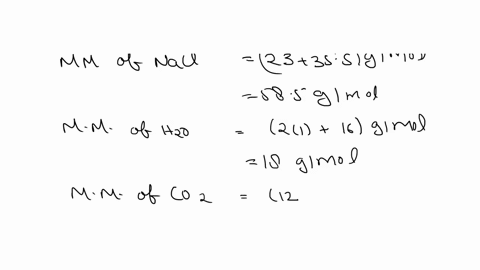 MM of NaCl = (23 + 35.5) g/mol
= 58.5 g/mol
M.M. of H2O = (2(1) + 16) g/mol
= 18 g/mol
M.M. of CO2 = (12